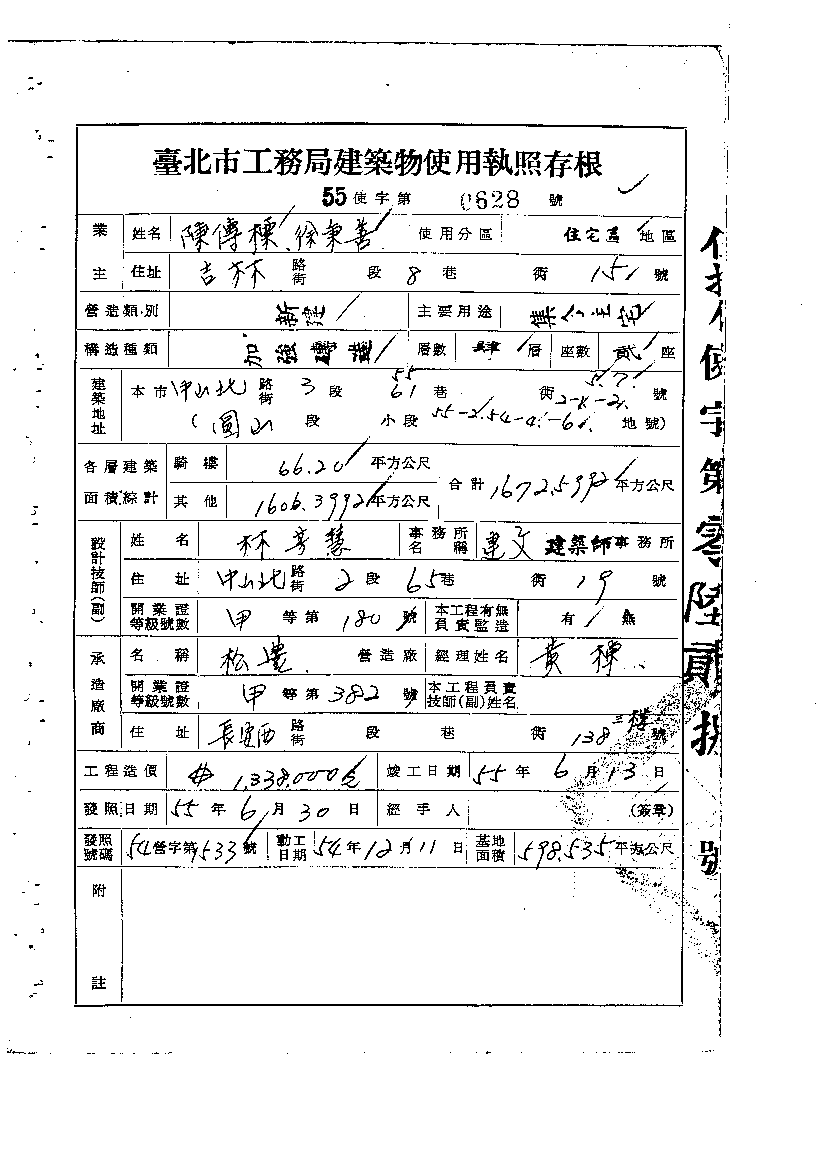 臺北市工務局建築物使用執照存根
55使字第 0628 號
業主 姓名 陳傳標、徐秉善 使用分區 住宅區 地區
住址 吉林 路街 段 8 巷 衖 151 號
營造類別 新建 主要用途 集合住宅
構造種類 加強磚造 層數 肆 層 座數 貳 座
建築地址 本市 中山北 路街 3 段 55 61 巷 衖 5.7. 2-4-2 號
(圓山 段 小段 55-2.54-4.-6 地號)
各層建築面積綜計 騎樓 66.20 平方公尺 合計 1672.5992 平方公尺
其他 1606.3992 平方公尺
設計技師(副) 姓名 林彥慧 事務所名稱 建文建築師事務所
住址 中山北 路街 2 段 65 巷 衖 19 號
開業證等級號數 甲 等第 180 號 本工程有無負責監造 有 無
承造廠商 名稱 松豊 營造廠 經理姓名 黃棟
開業證等級號數 甲 等第 382 號 本工程負責技師(副)姓名
住址 長安西 路街 段 巷 衖 138 號 三樓
工程造價 1,338,000元 竣工日期 55 年 6 月 13 日
發照日期 55 年 6 月 30 日 經手人 (簽章)
發照號碼 54 營字第 1533 號 動工日期 54 年 12 月 11 日 基地面積 598.535 平方公尺
附註
使字第零陸貳捌號